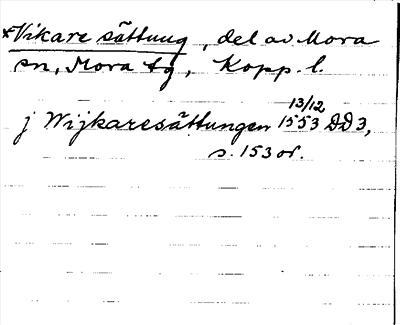 *Vikare sättung, del av Mora
sn, Mora tg, Kopp. l.
j Wijkaresättungen 13/12 1553 DD 3,
s. 153 or.